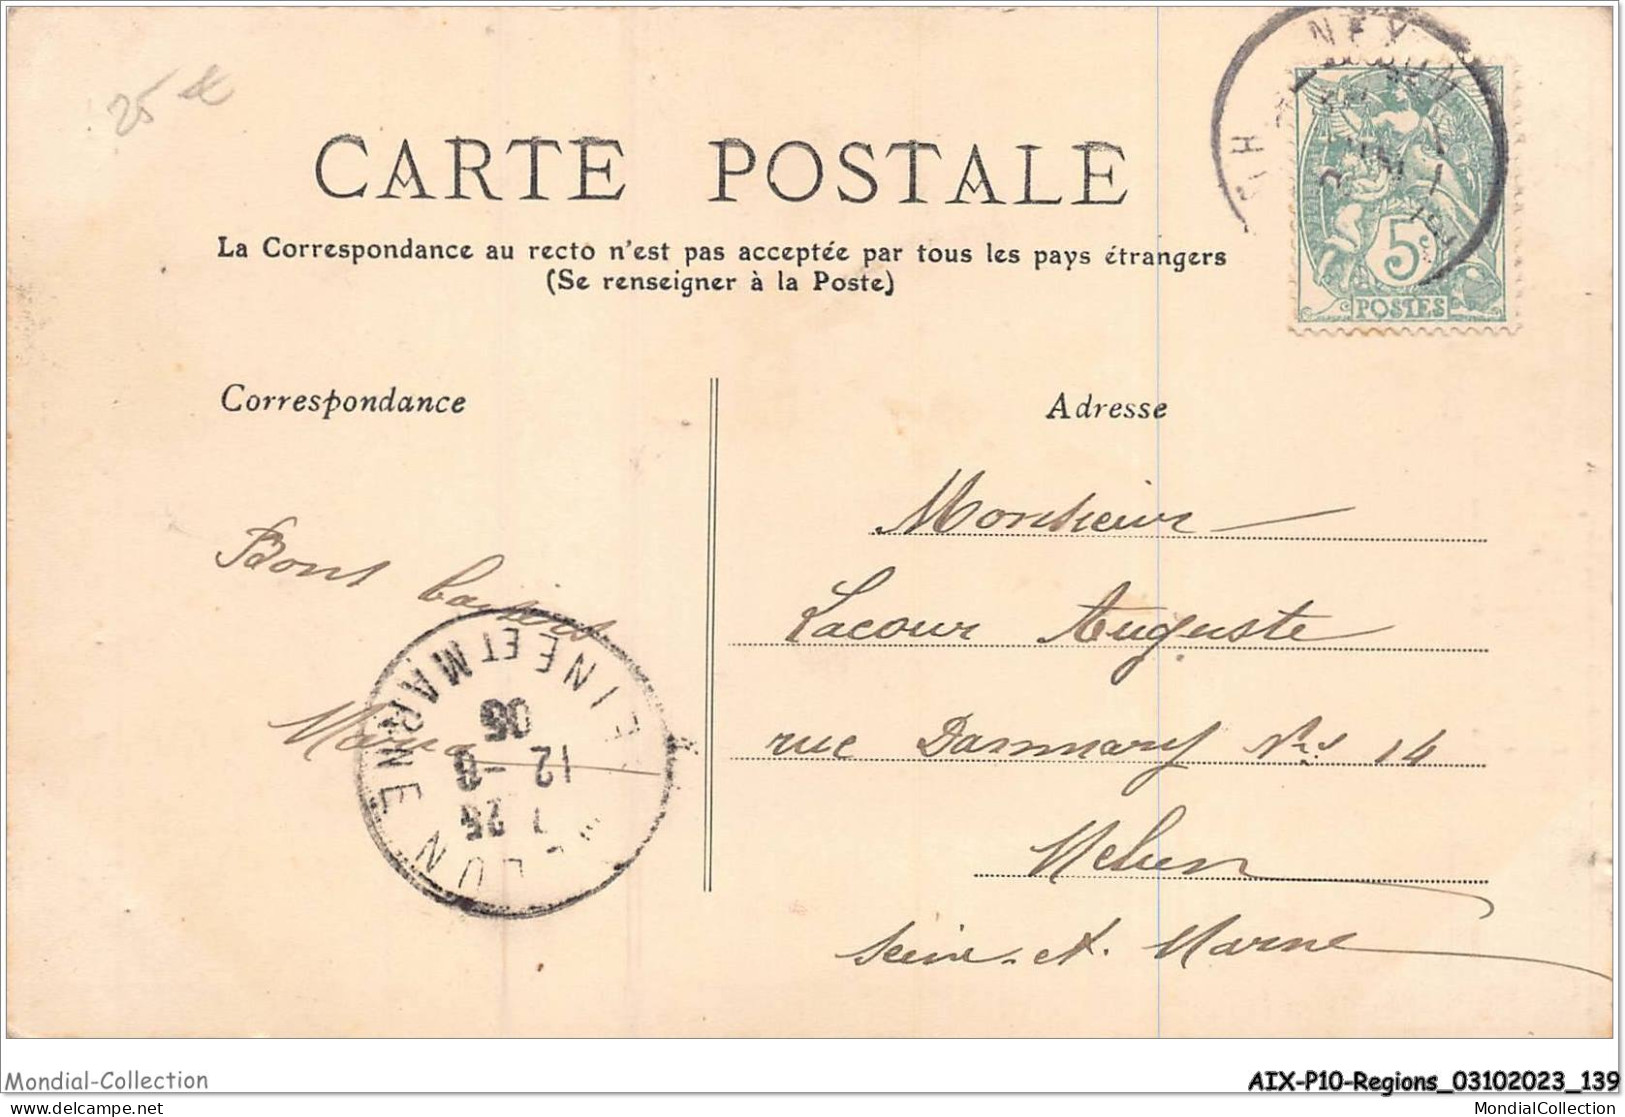 25
CARTE POSTALE
La Correspondance au recto n'est pas acceptée par tous les pays étrangers
(Se renseigner à la Poste)
NEXON
H
5c
POSTES
Correspondance
Adresse
Bons baisers
Monsieur
Lacour Auguste
rue Dammary No 14
Melun
Seine et Marne
MELUN
SEINE ET MARNE
7 25
12 -8
05
Mondial-Collection
AIX-P10-Regions_03102023_139
MondialCollection
MondialCollection